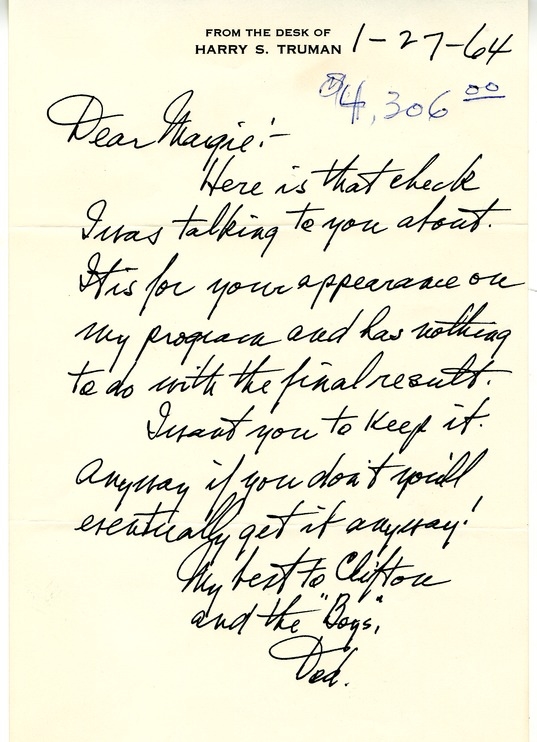 FROM THE DESK OF
HARRY S. TRUMAN
1-27-64
$4,306 00
Dear Margie:-
Here is that check
I was talking to you about.
It is for your appearance on
my program and has nothing
to do with the final result.
I want you to keep it.
Anyway if you don't you'll
eventually get it anyway!
My best to Clifton
and the "Boys."
Dad.